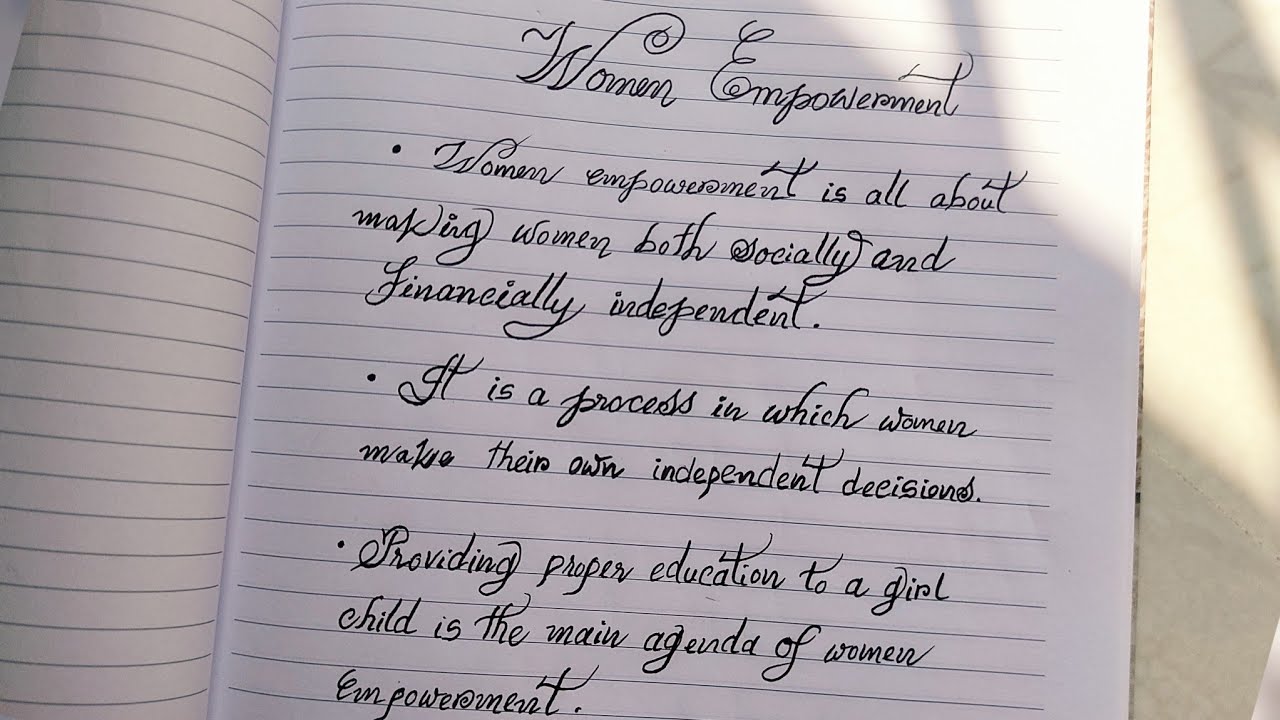 Women Empowerment
• Women empowerment is all about
making women both socially and
Financially independent.
• It is a process in which women
make their own independent decisions.
• Providing proper education to a girl
child is the main agenda of women
Empowerment.